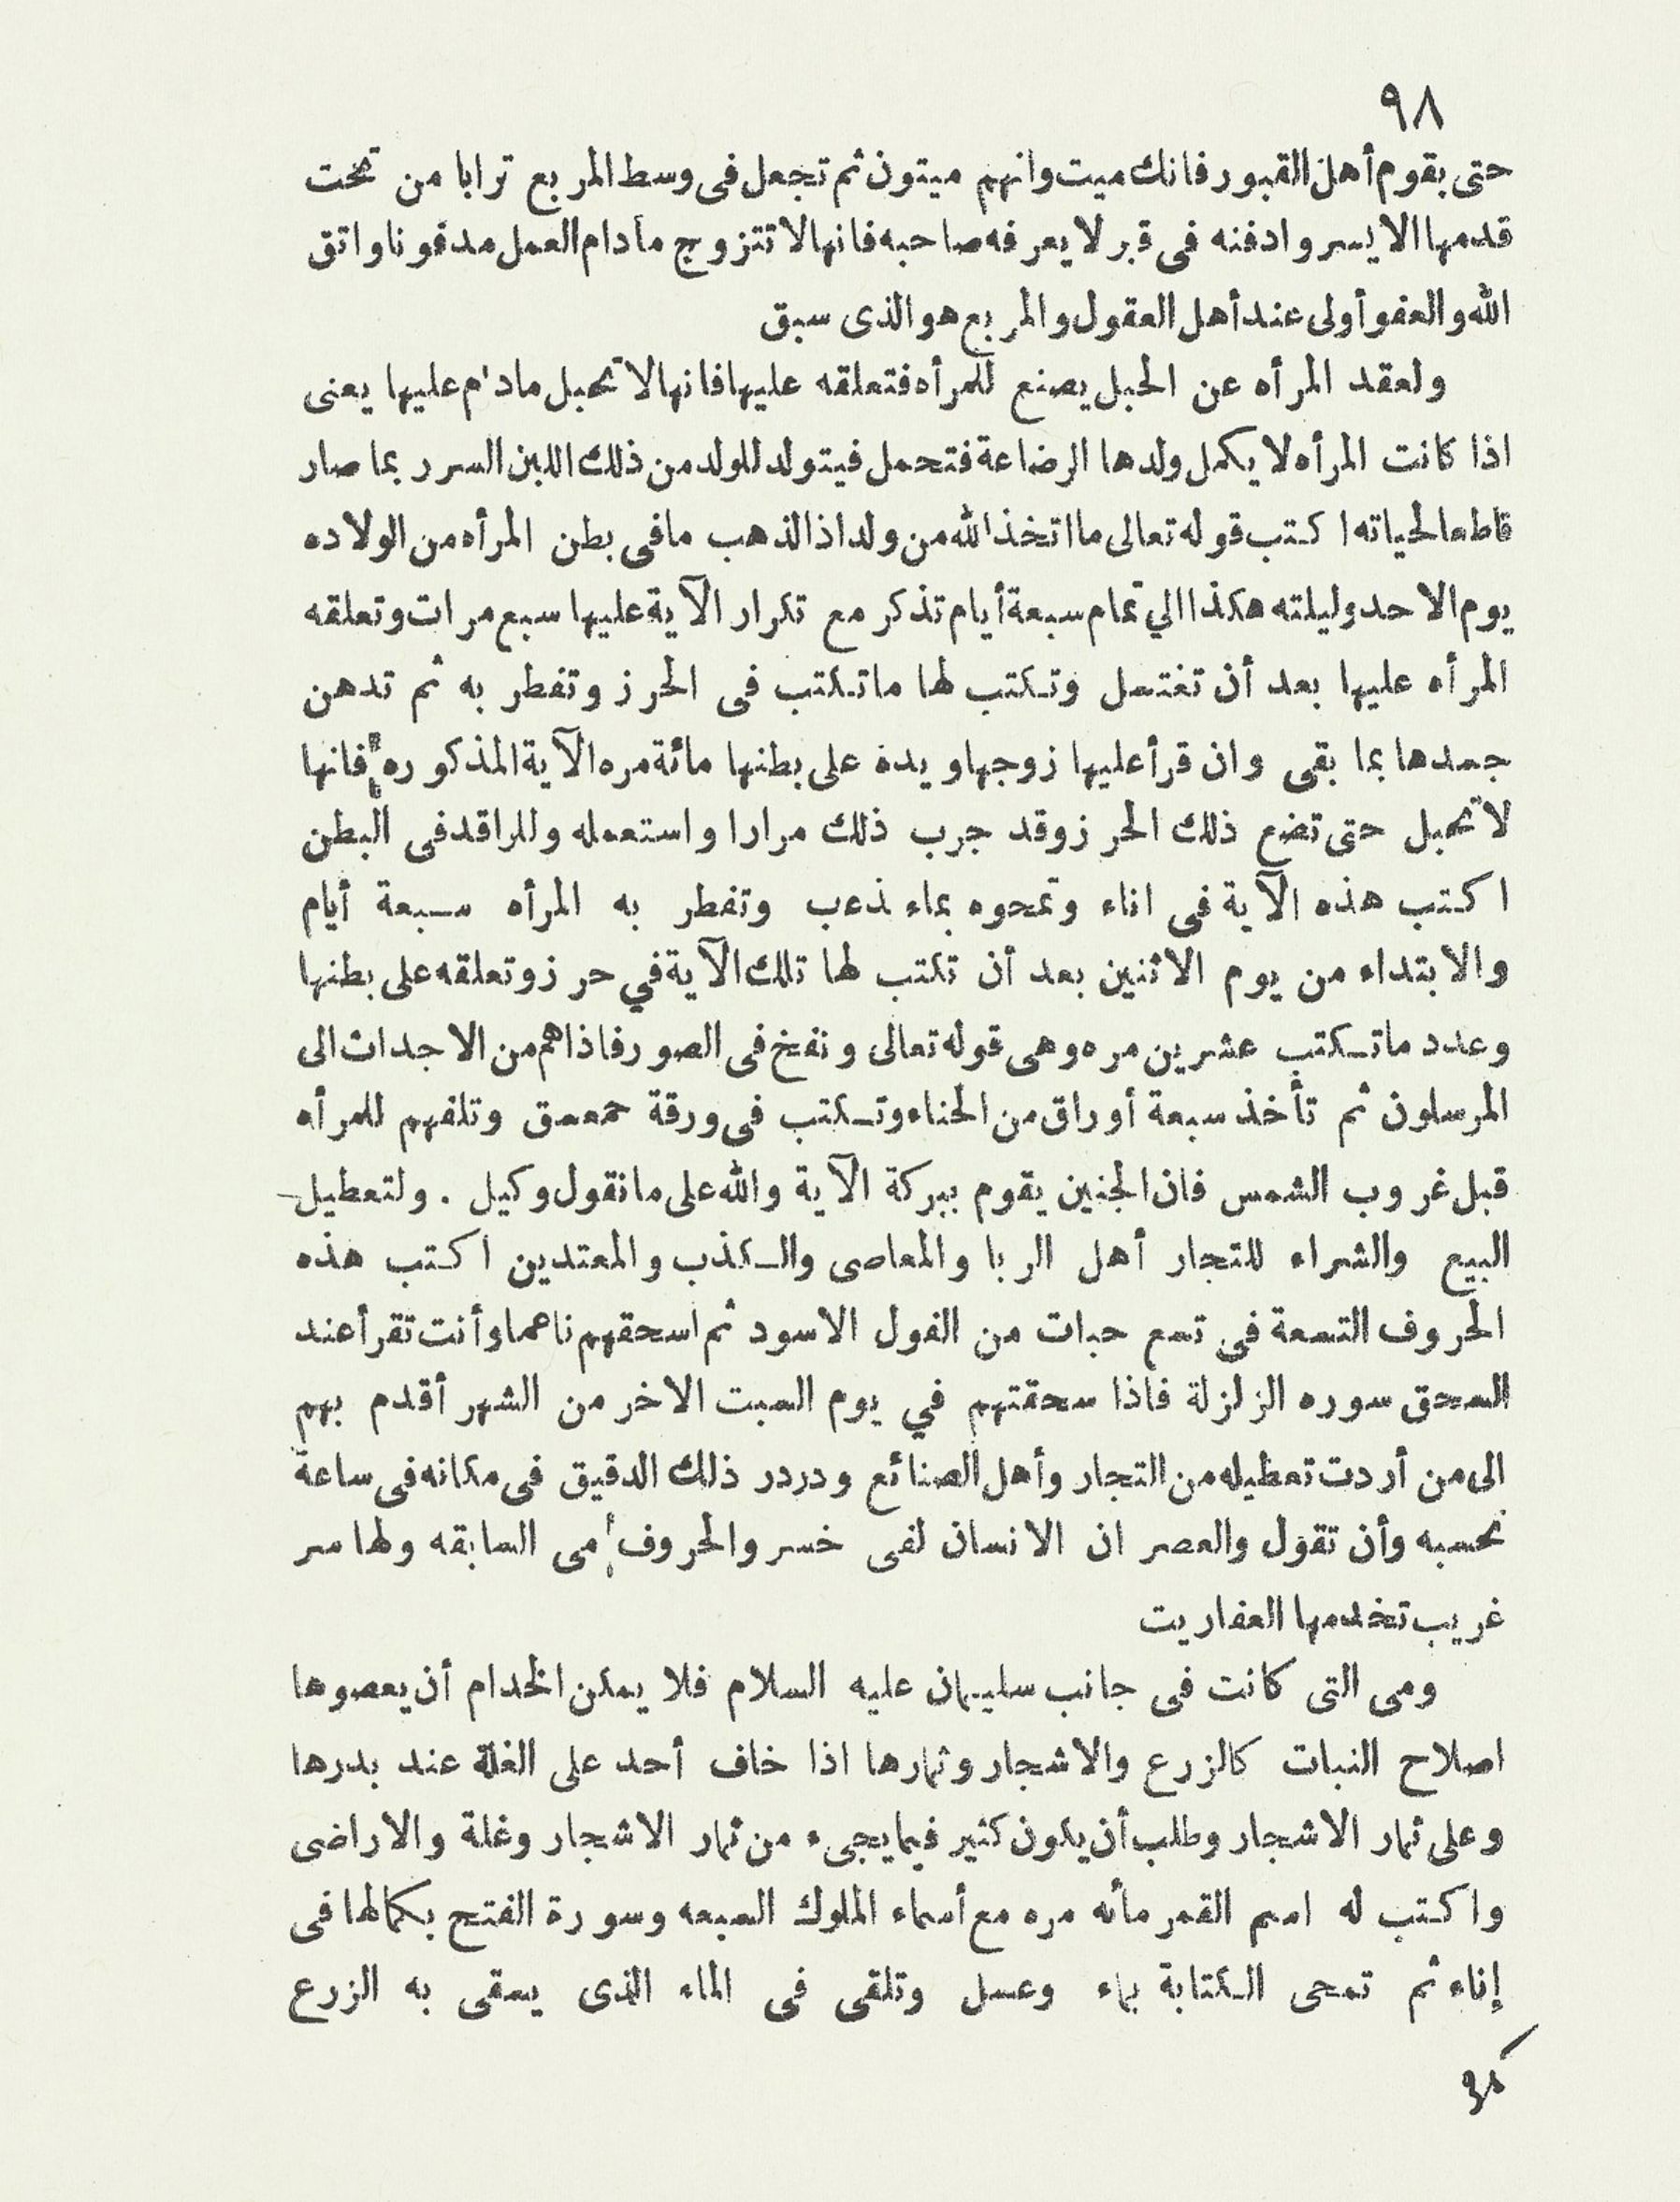 ٩٨
حتى يقوم أهل القبور فانك ميت وانهم ميتون ثم تجعل فى وسط المربع ترابا من تحت
قدمها الايسر وادفنه فى قبر لا يعرفه صاحبه فانها لا تتزوج مادام العمل مدفونا واتق
الله والعفو أولى عند أهل العقول والمربع هو الذى سبق
ولعقد المرأه عن الحبل يصنع للمرأه فتعلقه عليها فانها لا تحبل مادام عليها يعنى
اذا كانت المرأه لا يكمل ولدها الرضاعة فتحمل فيتولد للولد من ذلك اللبن السر ربما صار
قاطعا لحياته اكتب قوله تعالى ما اتخذ الله من ولد اذا لذهب ما فى بطن المرأه من الولاده
يوم الاحد وليلته هكذا الي تمام سبعة أيام تذكر مع تكرار الآية عليها سبع مرات وتعلقه
المرأه عليها بعد أن تغتسل وتكتب لها ما تكتب فى الحرز وتفطر به ثم تدهن
جسدها بما بقى وان قرأ عليها زوجها ويده على بطنها مائة مره الآية المذكوره فانها
لا تحبل حتى تضع ذلك الحرز وقد جرب ذلك مرارا واستعمله وللراقد فى البطن
اكتب هذه الآية فى اناء وتمحوه بماء ذعب وتفطر به المرأه سبعة أيام
والابتداء من يوم الاثنين بعد أن تكتب لها تلك الآية في حرز وتعلقه على بطنها
وعدد ما تكتب عشرين مره وهى قوله تعالى ونفخ فى الصور فاذا هم من الاجداث الى
المرسلون ثم تأخذ سبعة أوراق من الحناء وتكتب فى ورقة حمعسق وتلفهم للمرأه
قبل غروب الشمس فان الجنين يقوم ببركة الآية والله على ما نقول وكيل . ولتعطيل
البيع والشراء للتجار أهل الربا والمعاصى والكذب والمعتدين اكتب هذه
الحروف التسعة فى تسع حبات من الفول الاسود ثم اسحقهم ناعما وأنت تقرأ عند
السحق سوره الزلزلة فاذا سحقتهم في يوم السبت الاخر من الشهر أقدم بهم
الى من أردت تعطيله من التجار وأهل الصنائع ودردر ذلك الدقيق فى مكانه فى ساعة
نحسبه وأن تقول والعصر ان الانسان لفى خسر والحروف مى السابقه ولها سر
غريب تخدمها العفاريت
ومى التى كانت فى جانب سليمان عليه السلام فلا يمكن الخدام أن يعصوها
اصلاح النبات كالزرع والاشجار وثمارها اذا خاف أحد على الغلة عند بدرها
وعلى ثمار الاشجار وطلب أن يكون كثير فيما يجىء من ثمار الاشجار وغلة والاراضى
واكتب له اسم القمر مأئه مره مع أسماء الملوك السبعه وسورة الفتح بكمالها فى
إناء ثم تمحى الكتابة بماء وعسل وتلقى فى الماء الذى يسقى به الزرع
٩٨